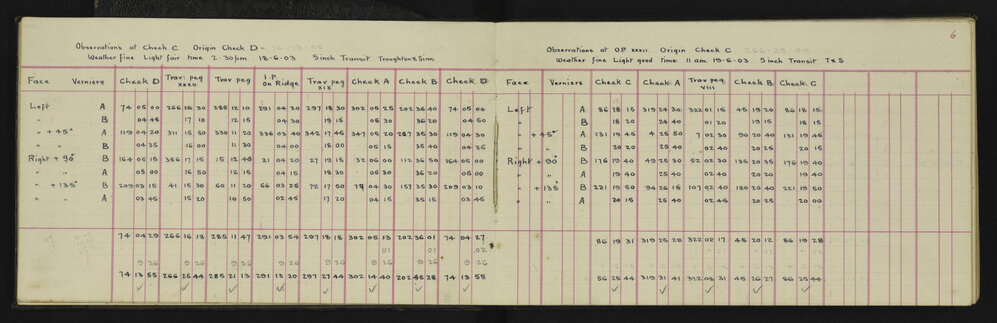 6
Observations at Check C Origin Check D =
Weather fine Light fair time 2.30pm 18-6-03 5 inch Transit Troughton & Simms
Face Verniers Check D Trav: peg XXXII Trav peg I.P on Ridge Trav peg XIX Check A Check B Check D
Left A 74 05 00 266 16 30 285 12 10 291 04 20 297 18 30 302 05 25 202 36 40 74 05 00
" B 04 45 17 10 12 15 04 30 19 15 05 30 36 20 04 50
" + 45° A 119 04 20 311 15 50 330 11 20 336 03 40 342 17 45 347 05 20 247 35 30 119 04 30
" " B 04 35 16 00 11 30 04 00 18 00 05 15 35 40 04 25
Right + 90° B 164 05 15 356 17 15 15 12 45 21 04 20 27 19 15 32 06 00 112 36 50 164 05 00
" " A 05 00 16 50 12 15 04 15 18 30 05 30 36 20 05 00
" + 135° B 209 03 15 41 15 30 60 11 20 66 03 25 72 17 50 77 04 30 157 35 30 209 03 10
" " A 03 45 15 20 10 50 02 45 17 20 04 15 35 15 03 45
74 04 29 266 16 18 285 11 47 291 03 54 297 18 18 302 05 13 202 36 01 74 04 27
01 01 02
9 26 9 26 9 26 9 26 9 26 9 26 9 26
74 13 55 266 25 44 285 21 13 291 13 20 297 27 44 302 14 40 202 45 28 74 13 55
Observations at O.P XXXII Origin Check C 266-25-44
Weather fine Light good time 11 am 19-6-03 5 inch Transit T & S
Face Verniers Check C Check A Trav peg VIII Check B Check C
Left A 86 18 15 319 24 30 322 01 15 45 19 20 86 18 15
" B 18 20 24 40 01 20 19 15 18 15
" + 45° A 131 19 45 4 25 50 7 02 30 90 20 40 131 19 45
" " B 20 20 25 40 02 40 20 25 20 15
Right + 90° B 176 19 40 49 25 30 52 02 30 135 20 35 176 19 40
" " A 19 40 25 40 02 40 20 20 19 40
" + 135° B 221 19 50 94 26 15 107 02 40 180 20 40 221 19 50
" " A 20 15 25 40 02 45 20 25 20 00
86 19 31 319 25 28 322 02 17 45 20 12 86 19 28
86 25 44 319 31 41 322 08 31 45 26 27 86 25 44